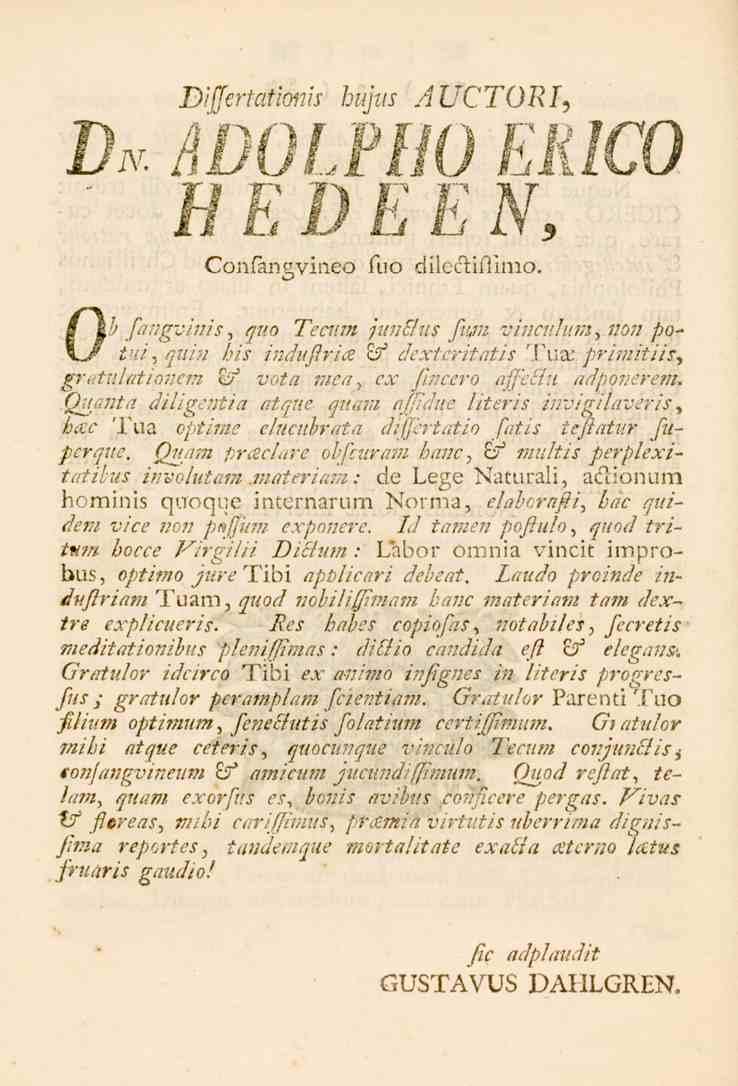 Dissertationis hujus AUCTORI,
DN. ADOLPHO ERICO
HEDEEN,
Consangvineo suo dilectissimo.
Ob sangvinis, quo Tecum junctus sum vinculum, non po-
tui, quin his industriæ & dexteritatis Tuæ primitiis,
gratulationem & vota mea, ex sincero affectu adponerem.
Quanta diligentia atque quam assidue literis invigilaveris,
hæc Tua optime elucubrata dissertatio satis testatur su-
perque. Quam præclare obscuram hanc, & multis perplexi-
tatibus involutam materiam: de Lege Naturali, actionum
hominis quoque internarum Norma, elaborasti, hac qui-
dem vice non possum exponere. Id tamen postulo, quod tri-
tum hocce Virgilii Dictum: Labor omnia vincit impro-
bus, optimo jure Tibi applicari debeat. Laudo proinde in-
dustriam Tuam, quod nobilissimam hanc materiam tam dex-
tre explicueris. Res habes copiosas, notabiles, secretis
meditationibus plenissimas: dictio candida est & elegans.
Gratulor idcirco Tibi ex animo insignes in literis progres-
sus; gratulor peramplam scientiam. Gratulor Parenti Tuo
filium optimum, senectutis solatium certissimum. Gratulor
mihi atque ceteris, quocunque vinculo Tecum conjunctis,
consangvineum & amicum jucundissimum. Quod restat, te-
lam, quam exorsus es, bonis avibus conficere pergas. Vivas
& floreas, mihi carissimus, præmia virtutis uberrima dignis-
sima reportes, tandemque mortalitate exacta æterno lætus
fruaris gaudio!
sic adplaudit
GUSTAVUS DAHLGREN.